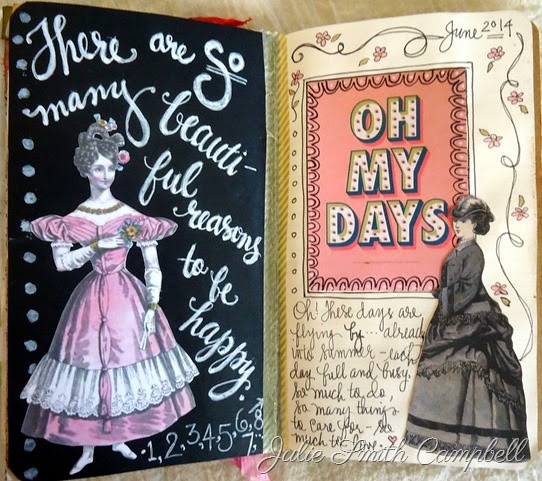 There are so
many beauti-
ful
reasons
to be
happy.
1, 2, 3, 4, 5, 6, 7, 8
June 2014
OH
MY
DAYS
Oh! These days are
flying by... already
into summer - each
day full and busy.
So much to do,
so many things
to care for - so
much to love.
Julie Smith Campbell